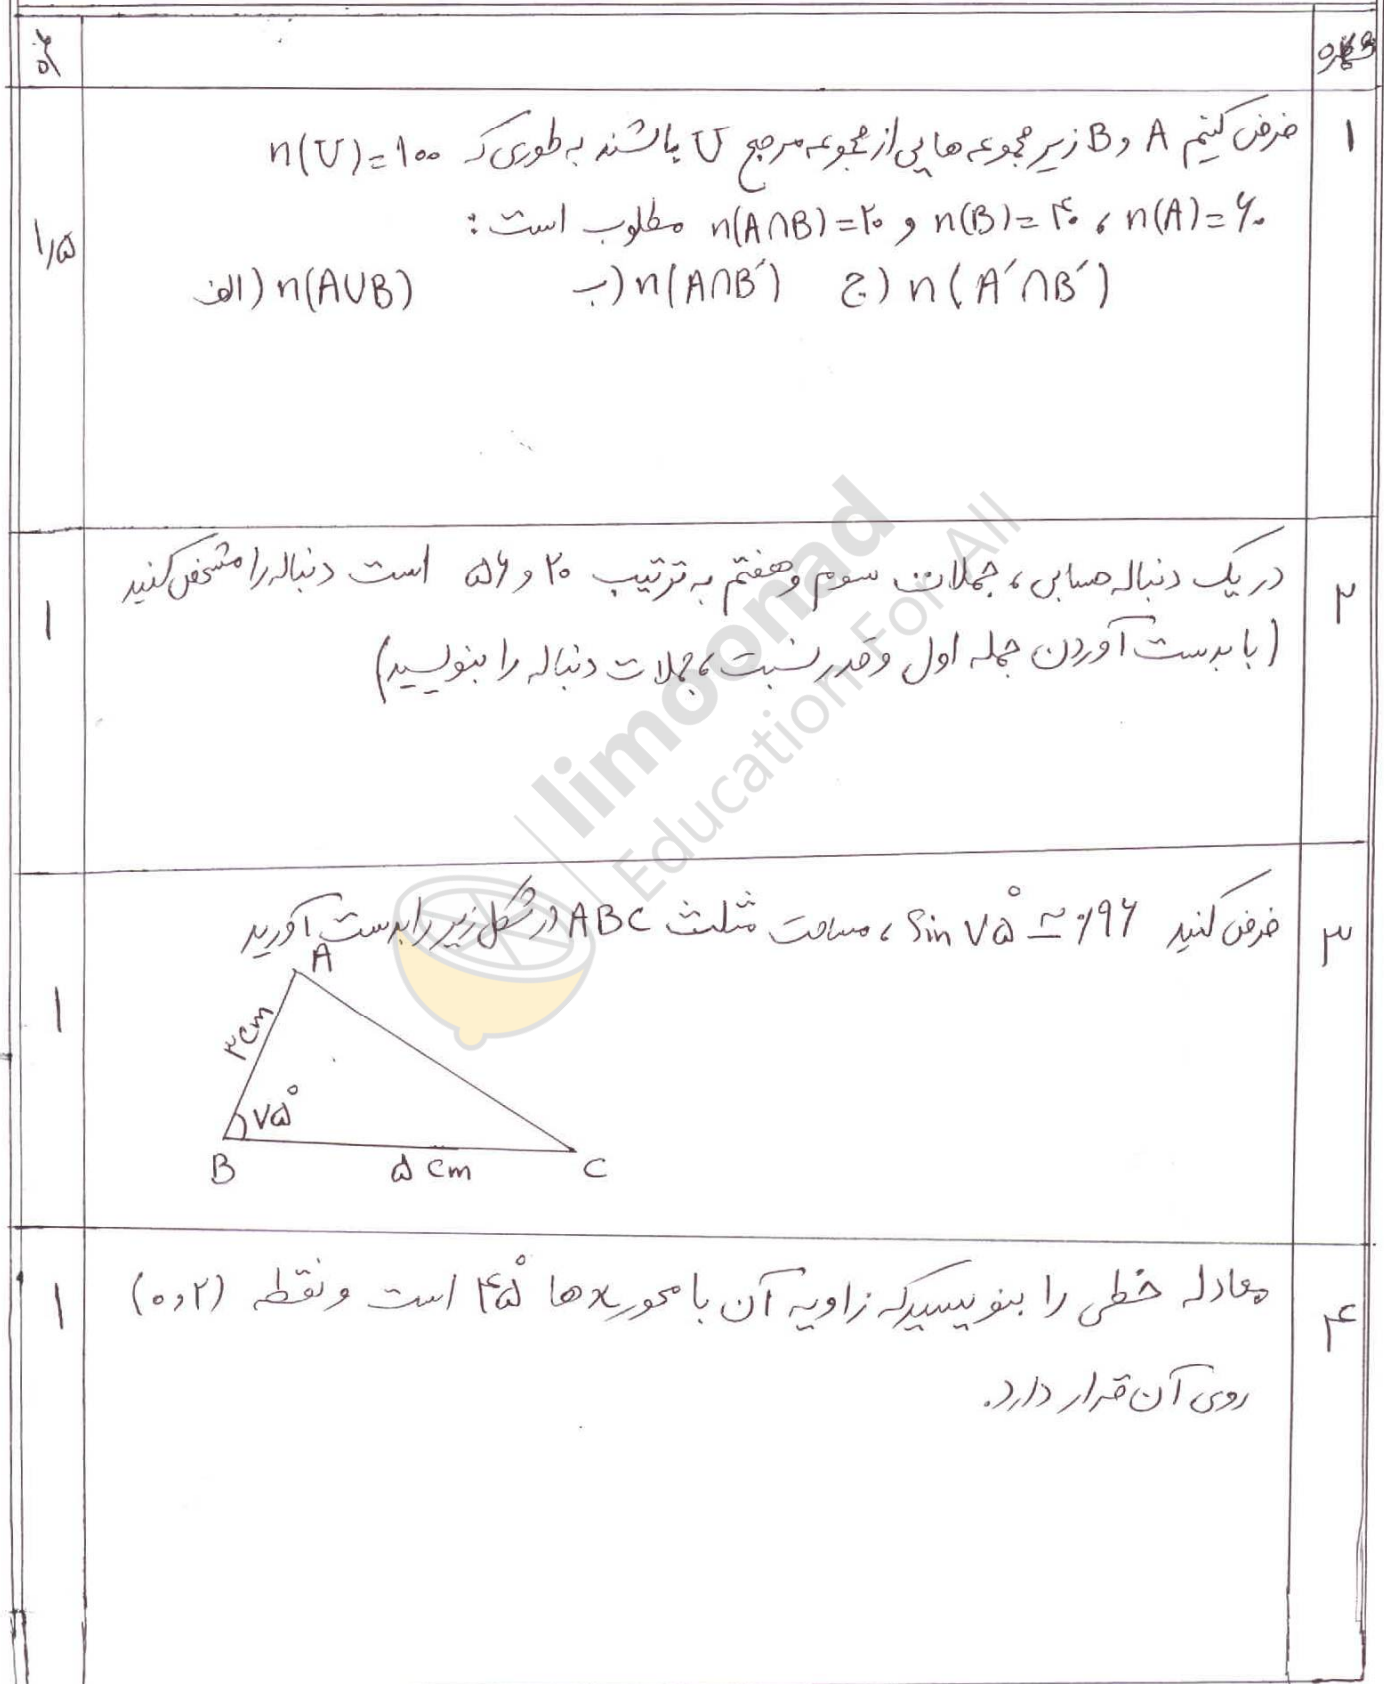 شماره
۱
فرض کنیم A و B زیر مجموعه هایی از مجموعه مرجع U باشند به طوری که n(U)=۱۰۰
n(A)=۶۰ ، n(B)=۴۰ و n(A∩B)=۲۰ مطلوب است :
الف) n(A∪B) ب) n(A∩B′) ج) n(A′∩B′)
۱/۵
۲
در یک دنباله حسابی ، جملات سوم و هفتم به ترتیب ۲۰ و ۵۶ است دنباله را مشخص کنید
(با بدست آوردن جمله اول و قدر نسبت ، جملات دنباله را بنویسید)
۱
۳
فرض کنید sin ۷۵° ≃ ۰/۹۶ ، مساحت مثلث ABC در شکل زیر را بدست آورید
A
۳cm
۷۵°
B
۵ cm
C
۱
۴
معادله خطی را بنویسید که زاویه آن با محور x ها ۴۵° است و نقطه (۲و۰)
روی آن قرار دارد.
۱
limoonad
Education For All